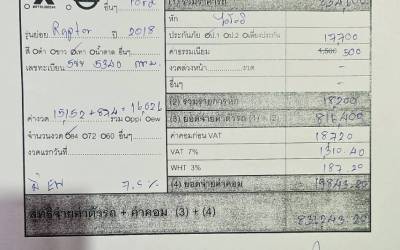 MITSUBISHI อื่นๆ Ford
รุ่นย่อย Raptor ปี 2018
สี
เลขทะเบียน 5340 กทม.
ค่างวด 15152 + 874 = 16,026
จำนวนงวด 84 72 60 อื่นๆ
งวดแรกวันที่
EW 7.0%
(1) รวมราคารถ
หัก
ประกันภัย ป.1 ป.2 17700
ค่าธรรมเนียม 1,500 500
งวดล่วงหน้า งวด -
อื่นๆ -
(2) รวมรายการหัก 18200
(3) ยอดจ่ายค่าตัวรถ (1) - (2) 811,400
ค่าคอมก่อน VAT 18720
VAT 7% 1,310.40
WHT 3% 187.20
(4) ยอดจ่ายค่าคอม 19843.20
สุทธิจ่ายค่าตัวรถ + ค่าคอม (3) + (4) 831,243.20